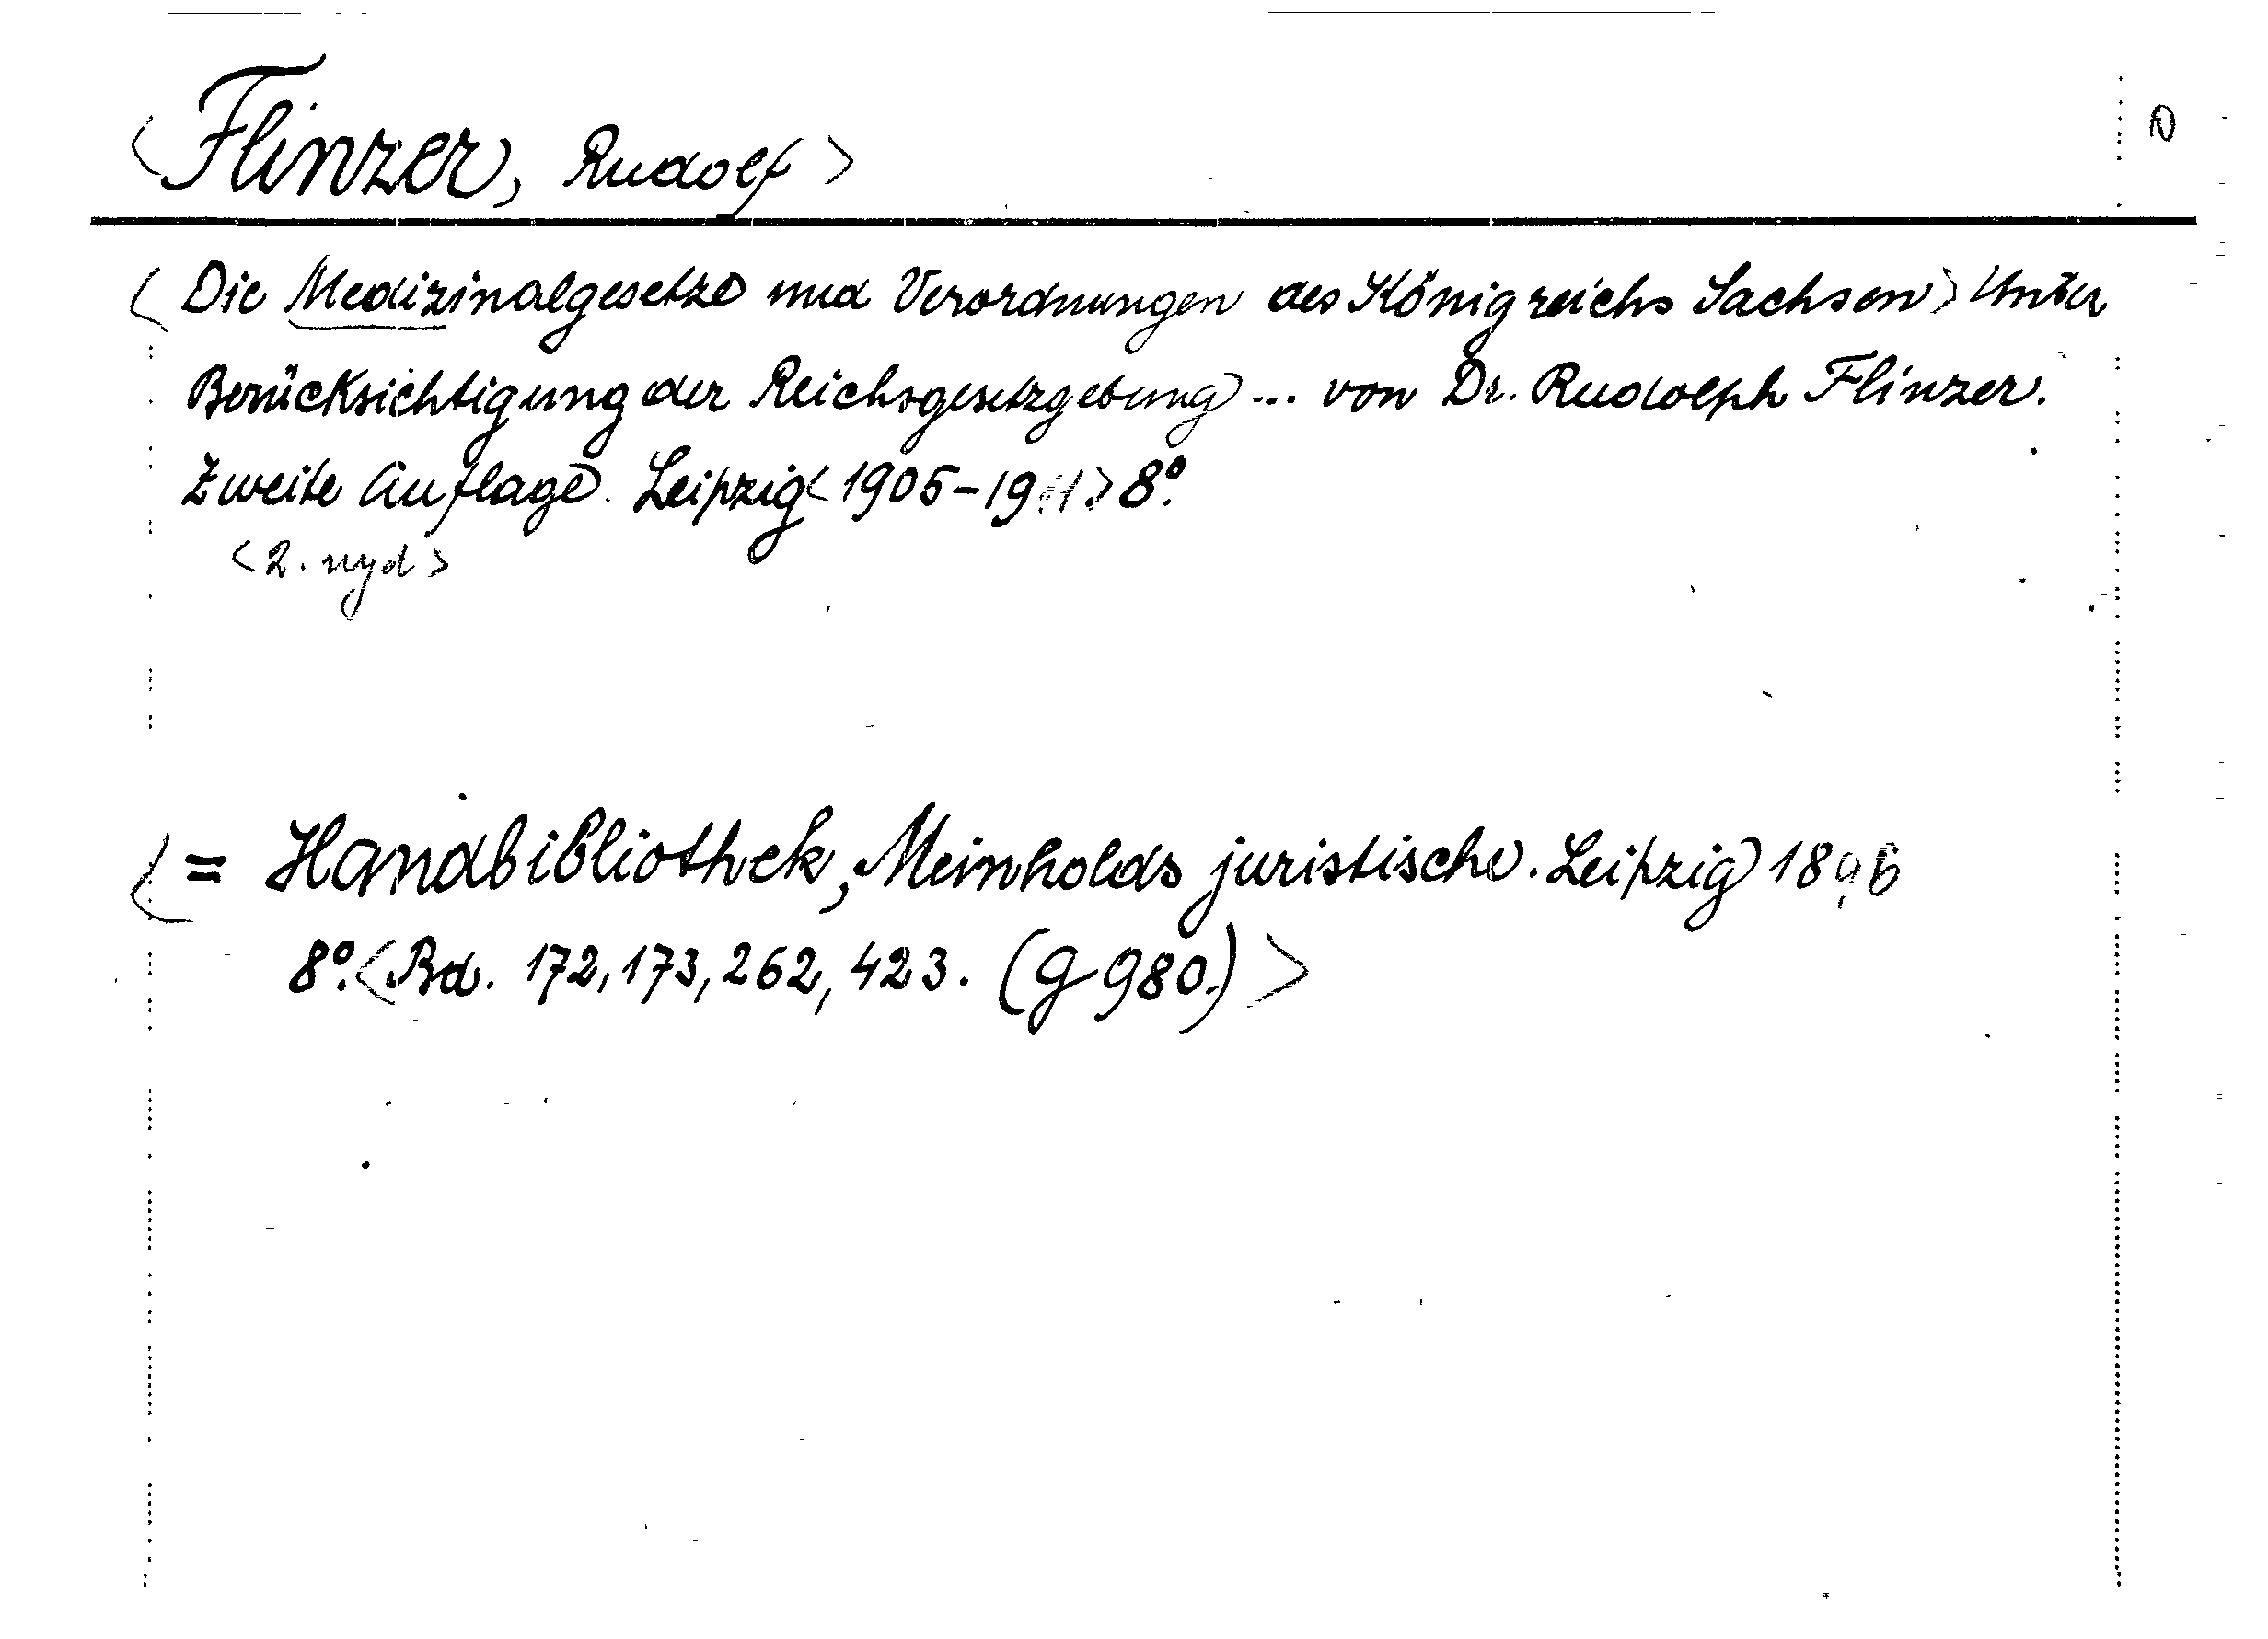 <Flinzer, Rudolf>
<Die Medizinalgesetze und Verordnungen des Königreichs Sachsen> Unter
Berücksichtigung der Reichsgesetzgebung ... von Dr. Rudolph Flinzer.
Zweite Auflage. Leipzig <1905-1911.> 8°.
<2. nyd>
<= Handbibliothek, Meinholds juristische. Leipzig 1896
8°. <Bd. 172, 173, 262, 423. (G 980.)>